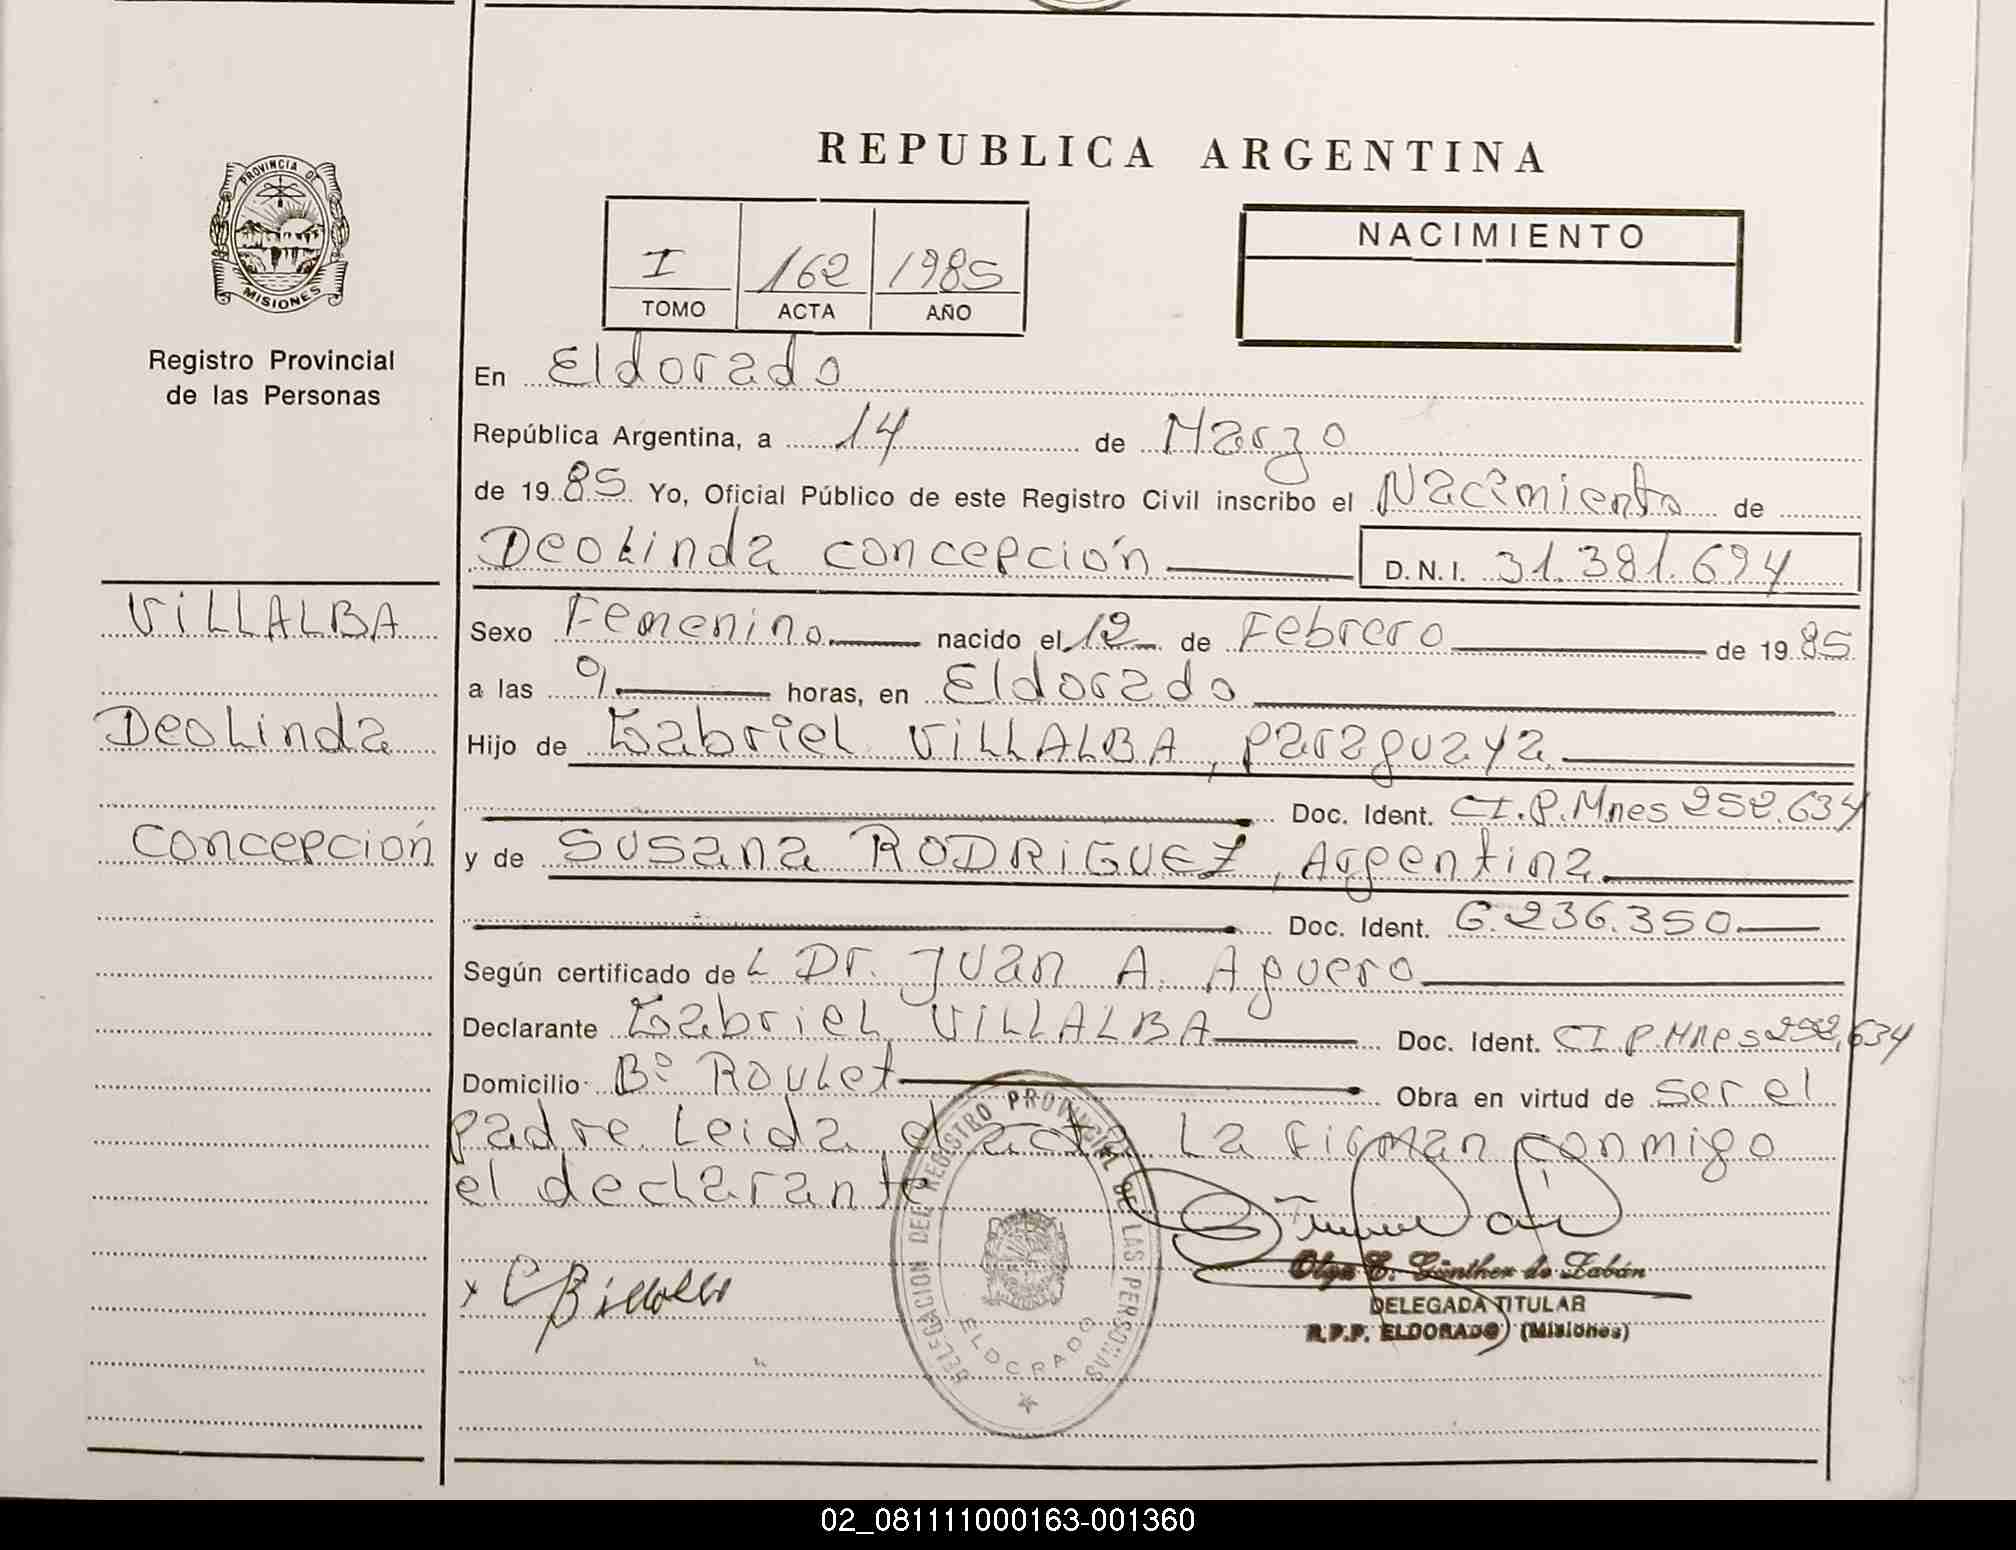 REPUBLICA ARGENTINA
PROVINCIA DE
MISIONES
Registro Provincial
de las Personas
I 162 1985
TOMO ACTA AÑO
NACIMIENTO
En Eldorado
República Argentina, a 14 de Marzo
de 1985 Yo, Oficial Público de este Registro Civil inscribo el Nacimiento de
Deolinda concepción D.N.I. 31.381.694
VILLALBA
Deolinda
concepción
Sexo Femenino nacido el 12 de Febrero de 1985
a las 9 horas, en Eldorado
Hijo de Gabriel VILLALBA, paraguaya
Doc. Ident. CI.P.Mnes 252.634
y de Susana RODRIGUEZ, Argentina
Doc. Ident. 6.236.350
Según certificado del Dr. Juan A. Aguero
Declarante Gabriel VILLALBA Doc. Ident. CI P.Mnes 252.634
Domicilio Bº Roulet Obra en virtud de ser el
padre. Leida el acta La firman conmigo
el declarante
DELEGACION DEL REGISTRO PROVINCIAL DE LAS PERSONAS
ELDORADO
Olga E. Günther de Zabán
DELEGADA TITULAR
R.P.P. ELDORADO (Misiones)
02_081111000163-001360